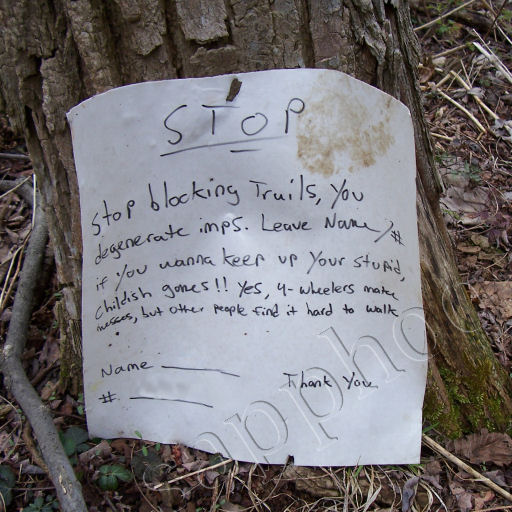 STOP
Stop blocking Trails, you
degenerate imps. Leave Name/#
if you wanna keep up your stupid,
childish games!! Yes, 4-wheelers make
messes, but other people find it hard to walk
Name
Thank you
#